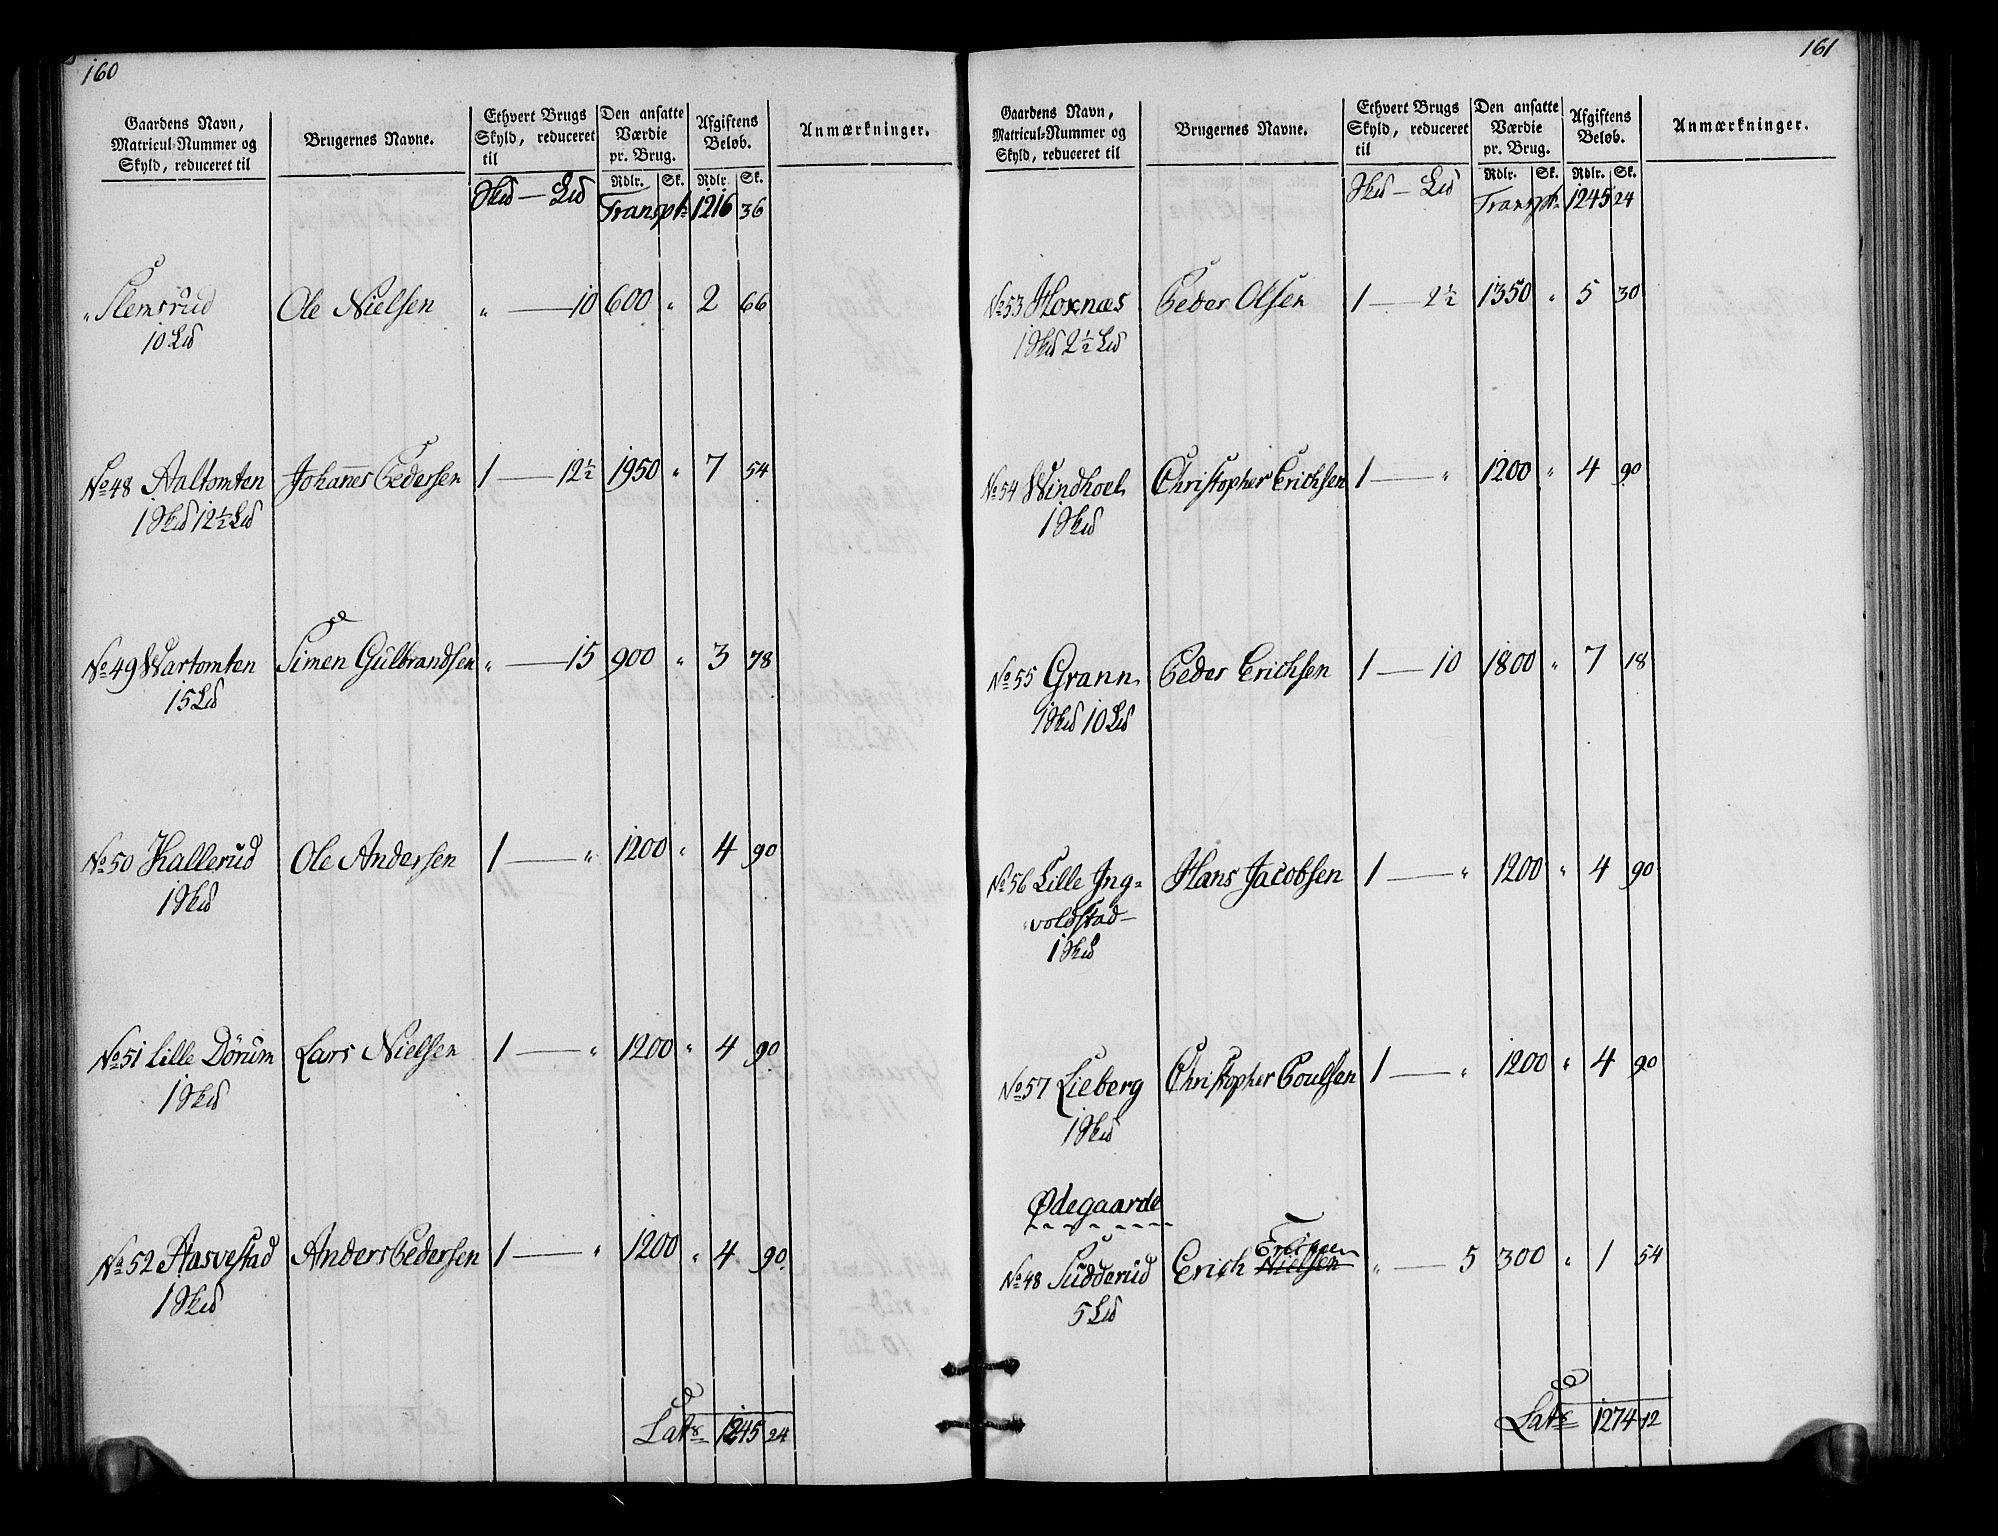 160
Gaardens Navn,
Matricul-Nummer og
Skyld, reduceret til
Brugernes Navne.
Ethvert Brugs
Skyld, reduceret
til
Den ansatte
Værdie
pr. Brug.
Afgiftens
Beløb.
Anmærkninger.
Rdlr. Sk. Rdlr Sk.
Skd — Ld Transpt: 1216 36
„ Slemsrud Ole Nielsen „ — 10 600 „ 2 66
10 Ld
No 48 Aaltomten Johannes Pedersen 1 — 12½ 1950 „ 7 54
1 Skd 12½ Ld
No 49 Wartomten Simen Gulbrandsen „ — 15 900 „ 3 78
15 Ld
No 50 Kallerud Ole Andersen 1 — „ 1200 „ 4 90
1 Skd
No 51 Lille Dørum Lars Nielsen 1 — „ 1200 „ 4 90
1 Skd
No 52 Aasvestad Anders Pedersen 1 — „ 1200 „ 4 90
1 Skd
Lats 1245 24
161
Gaardens Navn,
Matricul-Nummer og
Skyld, reduceret til
Brugernes Navne.
Ethvert Brugs
Skyld, reduceret
til
Den ansatte
Værdie
pr. Brug.
Afgiftens
Beløb.
Anmærkninger.
Rdlr. Sk. Rdlr. Sk.
Skd — Ld Transpt. 1245 24
No 53 Hoxnæs Peder Olsen 1 — 2½ 1350 „ 5 30
1 Skd 2½ Ld
No 54 Windhoel Christopher Erichsen 1 — „ 1200 „ 4 90
1 Skd
No 55 Grann Peder Erichsen 1 — 10 1800 „ 7 18
1 Skd 10 Ld
No 56 Lille Ing= Hans Jacobsen 1 — „ 1200 „ 4 90
voldstad —
1 Skd
No 57 Lieberg Christopher Poulsen 1 — „ 1200 „ 4 90
1 Skd
Ødegaarde
No 48 Sudderud Erich Nielsen „ — 5 300 „ 1 54
5 Ld
Lats 1274 12